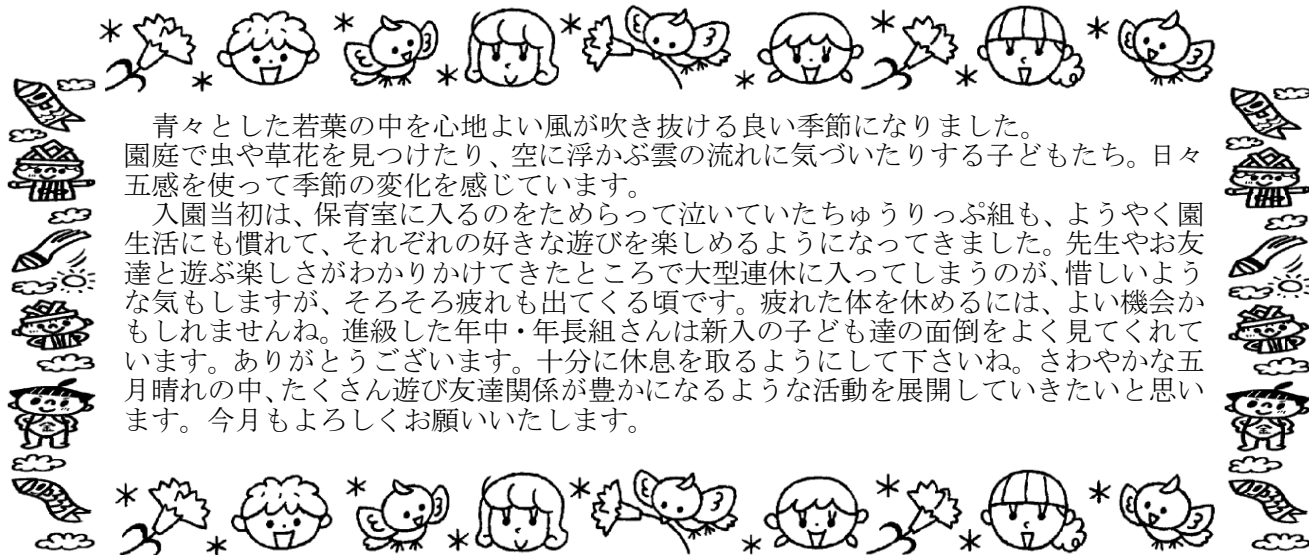 青々とした若葉の中を心地よい風が吹き抜ける良い季節になりました。
園庭で虫や草花を見つけたり、空に浮かぶ雲の流れに気づいたりする子どもたち。日々
五感を使って季節の変化を感じています。
　入園当初は、保育室に入るのをためらって泣いていたちゅうりっぷ組も、ようやく園
生活にも慣れて、それぞれの好きな遊びを楽しめるようになってきました。先生やお友
達と遊ぶ楽しさがわかりかけてきたところで大型連休に入ってしまうのが、惜しいよう
な気もしますが、そろそろ疲れも出てくる頃です。疲れた体を休めるには、よい機会か
もしれませんね。進級した年中・年長組さんは新入の子ども達の面倒をよく見てくれて
います。ありがとうございます。十分に休息を取るようにして下さいね。さわやかな五
月晴れの中、たくさん遊び友達関係が豊かになるような活動を展開していきたいと思い
ます。今月もよろしくお願いいたします。
金
金